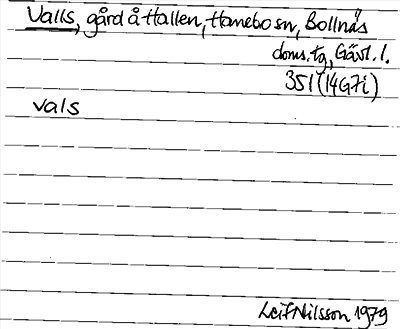 Valls, gård å Hallen, Hanebo sn, Bollnäs
doms. tg, Gävl. l.
351 (14G7i)
vals
Leif Nilsson 1979